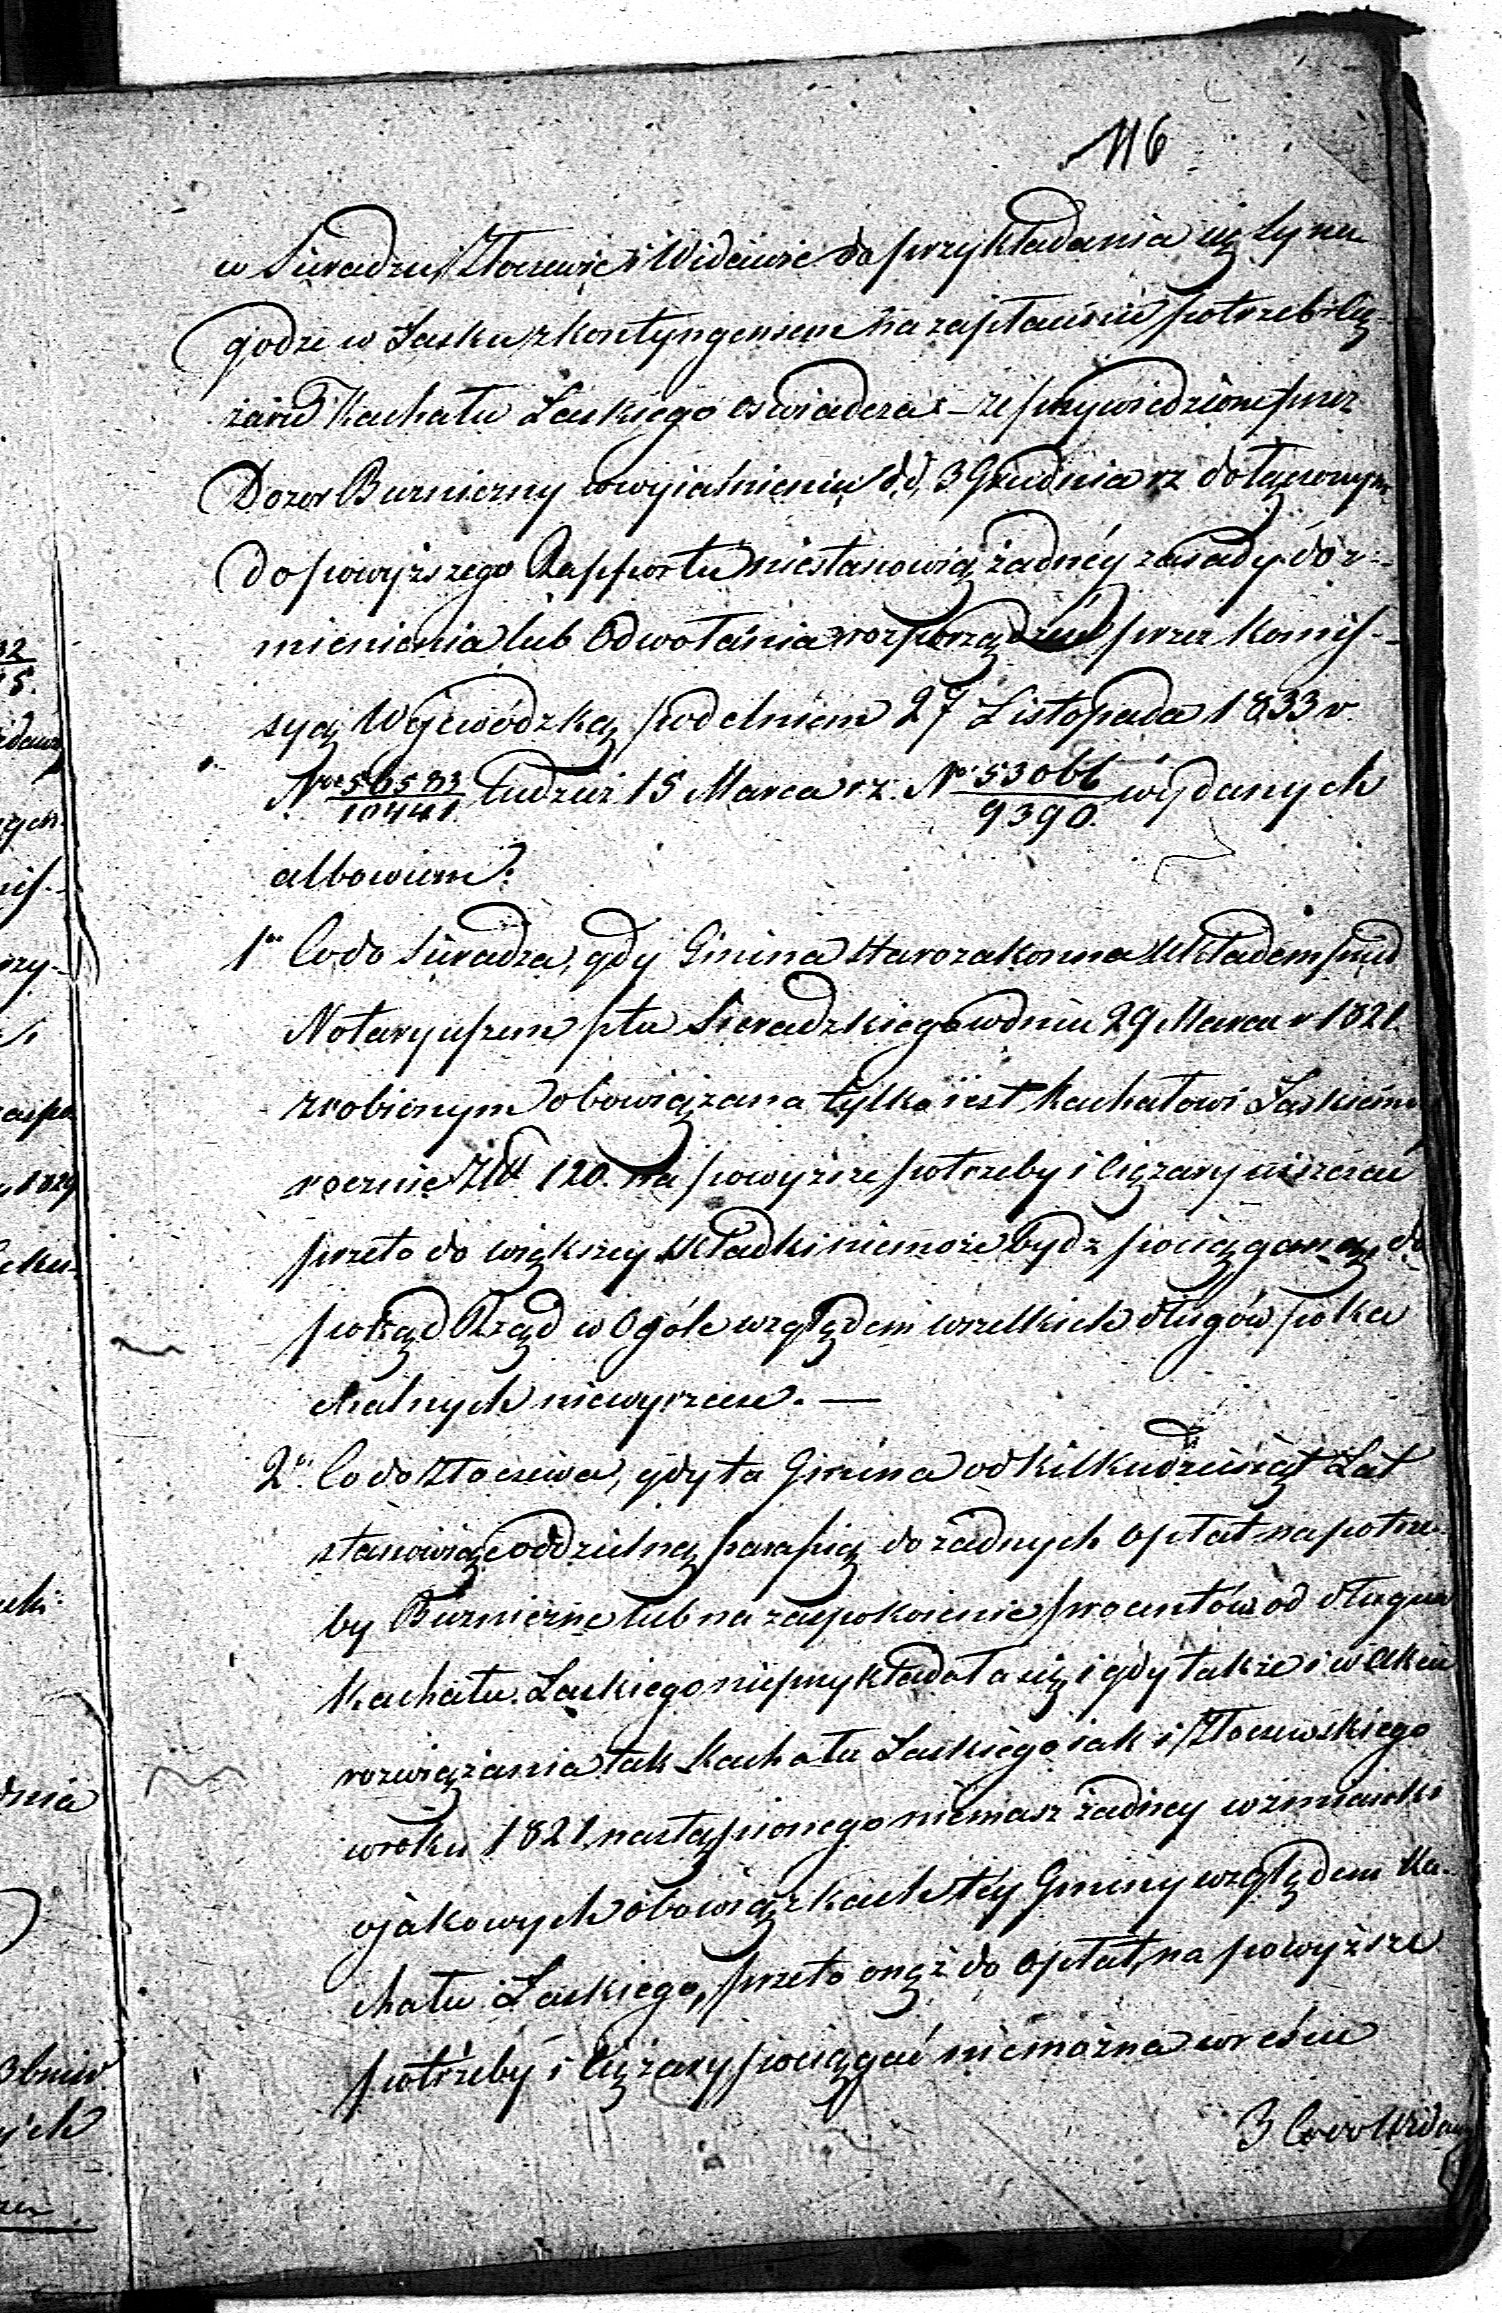 116
w Sieradzu, Złoczewie i Widawie do przykładania się Syna
godze w Łasku z kontyngensem na zapłacenie potrzeb i Cię-
żarów Kachału Łaskiego oswiadcza - że przywiedzione przez
Dozor Bużniczny w wyiaśnieniu d.d. 3 Grudnia rz dołączonym
do powyższego Rapportu niestanowią żadnéy zasady do z-
mienienia lub Odwołania rozporządzeń przez Komis-
syą Wojewódzką pod dniem 27 Listopada 1833 r.
Nro 56583/10441 tudzież 15 Marca rz. Nro 53066/9390 wydanych
albowiem:
1o Co do Sieradza, gdy Gmina Starozakonna Układem przed
Notaryuszem ptu Sieradzkiego w dniu 29 Marca r 1821.
zrobionym obowiązana tylko iest Kachałowi Łaskiemu
rocznie Złł 120. na powyższe potrzeby i Ciężary uiszczać
przeto do większey składki niemoże bydź pociąganą, do
pokąd Rząd w Ogóle względem wszelkich długów poka
chalnych niewyrzecze. —
2o Co do Złoczewa, gdy ta Gmina od kilkudziesiąt Lat
stanowiąc oddzielną parafią do żadnych Opłat na potrze-
by Bużniczne lub na zaspokoienie procentów od długów
Kachału Łaskiego nieprzykładała się i gdy także i w akcie
rozwiązania tak Kachału Łaskiego iak i Złoczewskiego
w roku 1821 nastąpionego niemasz żadney wzmianki
ojakowych obowiązkach téy Gminy względem Ka-
chału Łaskiego, przeto onęż do Opłat, na powyższe
potrzeby i Ciężary pociągać niemożna wreście
3 Co do Widawy